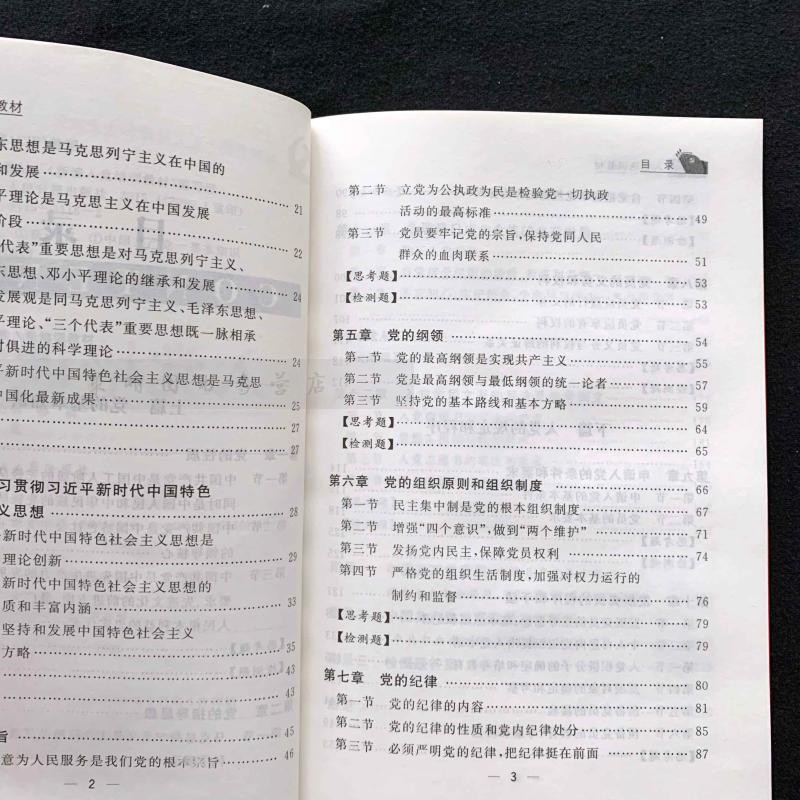 教材
东思想是马克思列宁主义在中国的
和发展 21
平理论是马克思主义在中国发展
阶段 22
代表”重要思想是对马克思列宁主义、
东思想、邓小平理论的继承和发展 24
发展观是同马克思列宁主义、毛泽东思想、
平理论、“三个代表”重要思想既一脉相承
时俱进的科学理论 24
平新时代中国特色社会主义思想是马克思
中国化最新成果 25
27
27
习贯彻习近平新时代中国特色
义思想 28
新时代中国特色社会主义思想是
理论创新 29
新时代中国特色社会主义思想的
质和丰富内涵 33
坚持和发展中国特色社会主义
方略 35
43
43
旨 45
意为人民服务是我们党的根本宗旨 46
— 2 —
目 录
第二节 立党为公执政为民是检验党一切执政
活动的最高标准 49
第三节 党员要牢记党的宗旨,保持党同人民
群众的血肉联系 51
【思考题】 53
【检测题】 53
第五章 党的纲领 54
第一节 党的最高纲领是实现共产主义 55
第二节 党是最高纲领与最低纲领的统一论者 57
第三节 坚持党的基本路线和基本方略 59
【思考题】 64
【检测题】 65
第六章 党的组织原则和组织制度 66
第一节 民主集中制是党的根本组织制度 67
第二节 增强“四个意识”,做到“两个维护” 71
第三节 发扬党内民主,保障党员权利 74
第四节 严格党的组织生活制度,加强对权力运行的
制约和监督 76
【思考题】 79
【检测题】 79
第七章 党的纪律 80
第一节 党的纪律的内容 81
第二节 党的纪律的性质和党内纪律处分 85
第三节 必须严明党的纪律,把纪律挺在前面 87
— 3 —